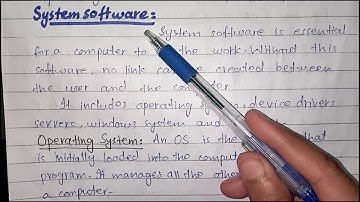 System software:
System software is essential
for a computer to the work. Without this
software, no link can be created between
the user and the computer
It includes operating device drivers
servers, windows system and
Operating System: An OS is the that
is initially loaded into the comput
program. It manages all the othe
a computer.